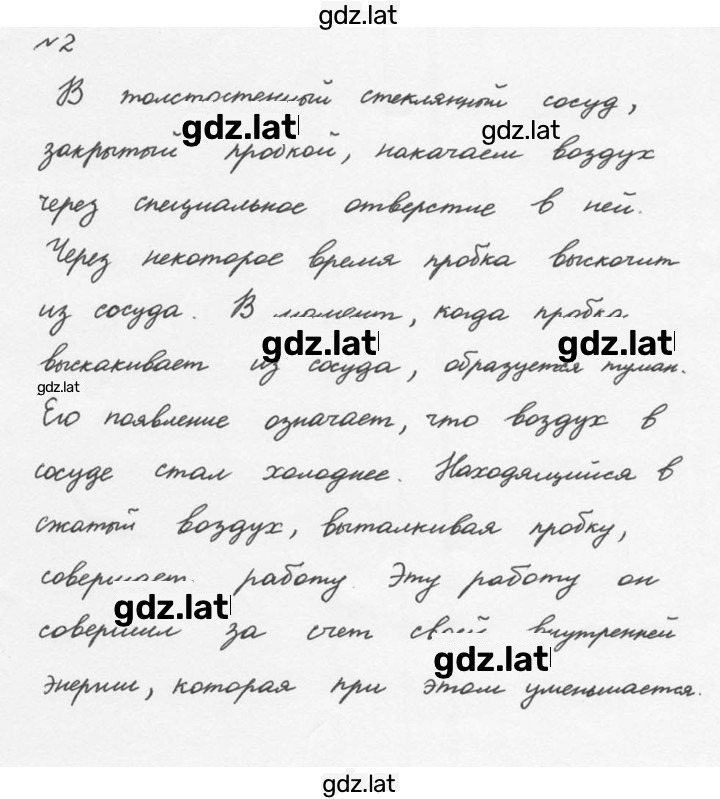 gdz.lat
№2
В толстостенный стеклянный сосуд,
gdz.lat gdz.lat
закрытый пробкой, накачаем воздух
через специальное отверстие в ней.
Через некоторое время пробка выскочит
из сосуда. В момент, когда пробка
gdz.lat gdz.lat
выскакивает из сосуда, образуется туман.
gdz.lat
Его появление означает, что воздух в
сосуде стал холоднее. Находящийся в
сжатый воздух, выталкивая пробку,
совершает работу. Эту работу он
gdz.lat
совершил за счет своей внутренней
gdz.lat
энергии, которая при этом уменьшается.
gdz.lat